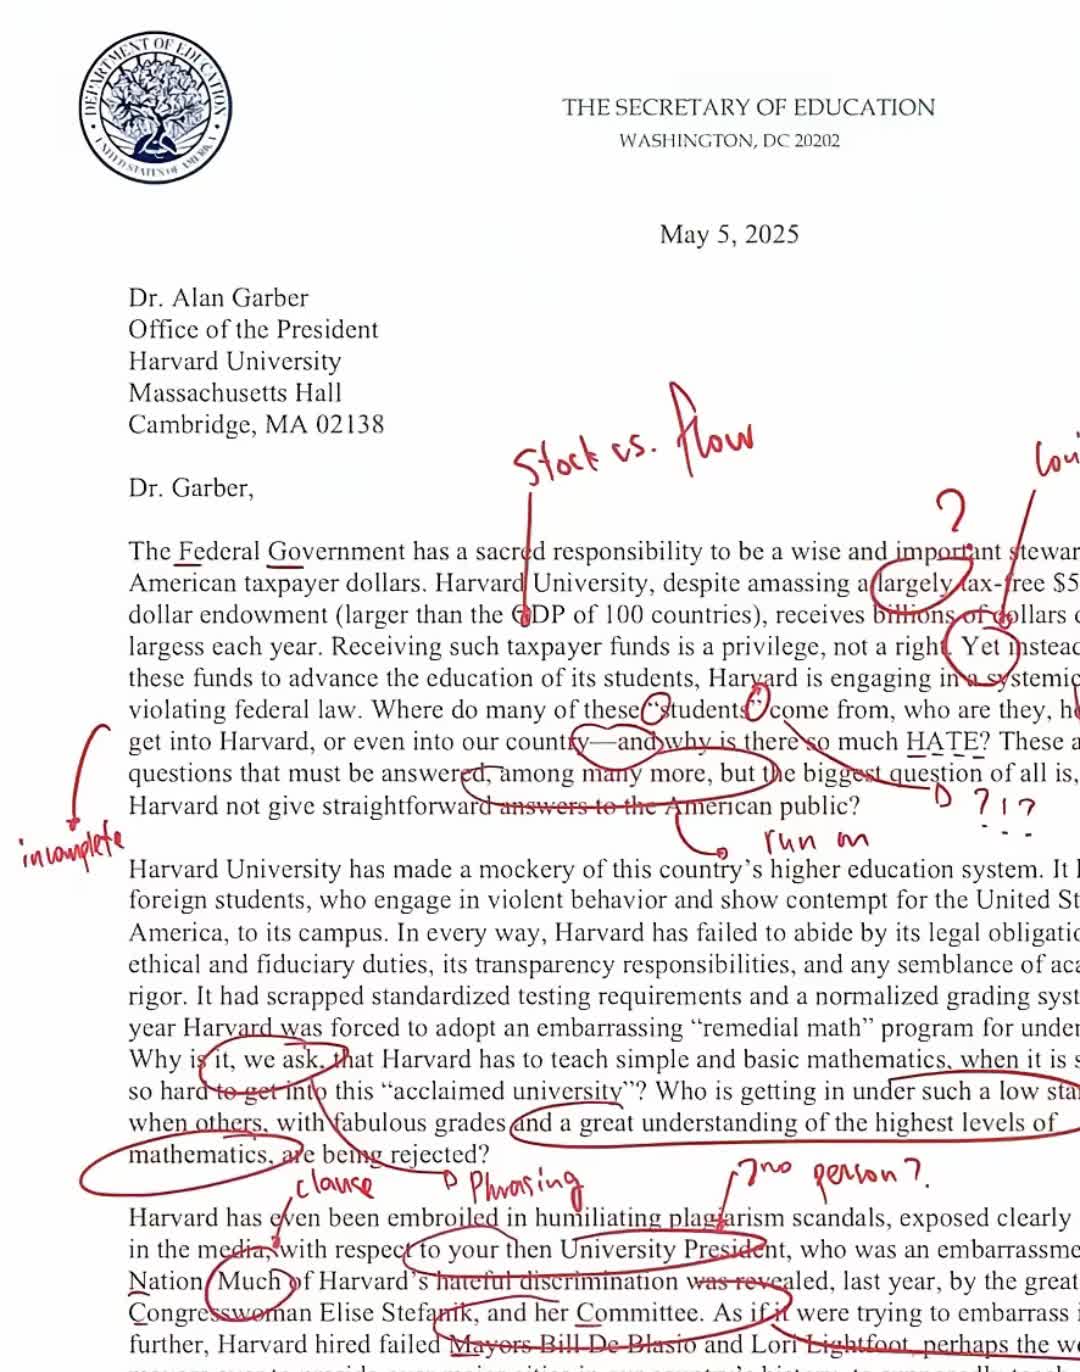 DEPARTMENT OF EDUCATION
UNITED STATES OF AMERICA
THE SECRETARY OF EDUCATION
WASHINGTON, DC 20202
May 5, 2025
Dr. Alan Garber
Office of the President
Harvard University
Massachusetts Hall
Cambridge, MA 02138
Stock vs. flow
Dr. Garber,
?
The Federal Government has a sacred responsibility to be a wise and important
American taxpayer dollars. Harvard University, despite amassing a largely tax-free
dollar endowment (larger than the GDP of 100 countries), receives billions of dollars
largess each year. Receiving such taxpayer funds is a privilege, not a right. Yet instead
these funds to advance the education of its students, Harvard is engaging in a systemic
violating federal law. Where do many of these “students” come from, who are they,
get into Harvard, or even into our country—and why is there so much HATE? These
questions that must be answered, among many more, but the biggest question of all is,
?!?
Harvard not give straightforward answers to the American public?
incomplete
run on
Harvard University has made a mockery of this country’s higher education system. It
foreign students, who engage in violent behavior and show contempt for the United
America, to its campus. In every way, Harvard has failed to abide by its legal
ethical and fiduciary duties, its transparency responsibilities, and any semblance of
rigor. It had scrapped standardized testing requirements and a normalized grading
year Harvard was forced to adopt an embarrassing “remedial math” program for
Why is it, we ask, that Harvard has to teach simple and basic mathematics, when it is
so hard to get into this “acclaimed university”? Who is getting in under such a low
when others, with fabulous grades and a great understanding of the highest levels of
mathematics, are being rejected?
clause
Phrasing
person?
Harvard has even been embroiled in humiliating plagiarism scandals, exposed clearly
in the media, with respect to your then University President, who was an
Nation. Much of Harvard’s hateful discrimination was revealed, last year, by the great
Congresswoman Elise Stefanik, and her Committee. As if it were trying to embarrass
further, Harvard hired failed Mayors Bill De Blasio and Lori Lightfoot, perhaps the